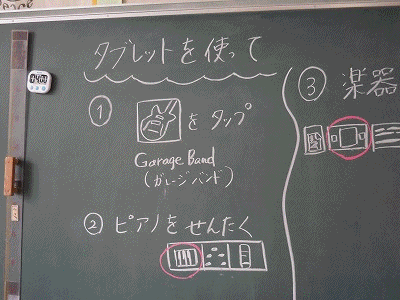 タブレットを使って
① をタップ
Garage Band
(ガレージバンド)
② ピアノをせんたく
③ 楽器